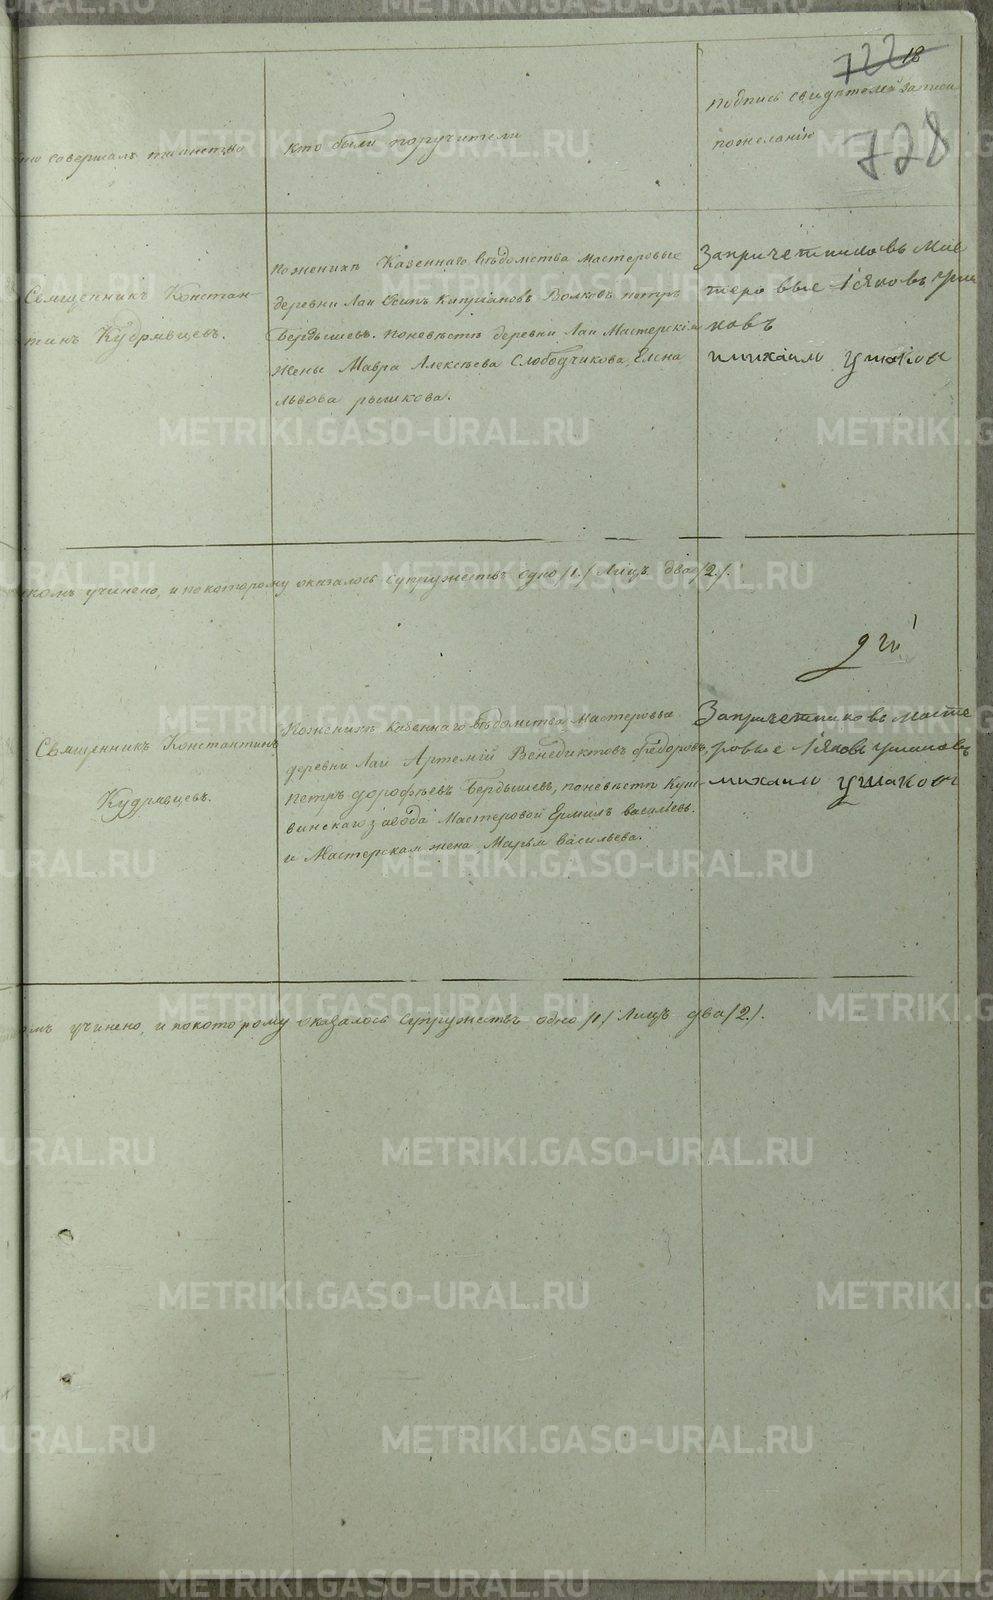 722 18
728
то совершалъ таинство
кто были поручители
подпись свидетелей записи
по желанію
Священникъ Констан-
тинъ Кудрявцевъ.
пожениху Казеннаго ведомства мастеровые
деревни Лаи Осипъ Киприановъ Волковъ, петръ
Бердышевъ. поневестѣ деревни Лаи Мастерскія
жены Мавра Алексѣева Слободчикова, Елена
львова рышкова.
Запричетниковъ Мас
теровые Iяковъ Уша
ковъ
имихаило ушаков
учинено, и покоторому оказалось супружествъ одно /1./ Лицъ двое /2./.
Священникъ Константинъ
Кудрявцевъ.
пожениху казеннаго ведомства мастеровые
деревни Лаи Артемій Венедиктовъ федоровъ,
петръ дорофѣевъ Бердышевъ, поневестѣ Куш-
винскаго завода Мастеровой Ермилъ васильевъ.
и Мастерская жена Марья васильева.
Запричетниковъ масте
ровые Iяковъ ушаковъ
михаило ушаков
учинено, и покоторому оказалось супружествъ одно /1/ Лицъ два /2./.
METRIKI.GASO-URAL.RU